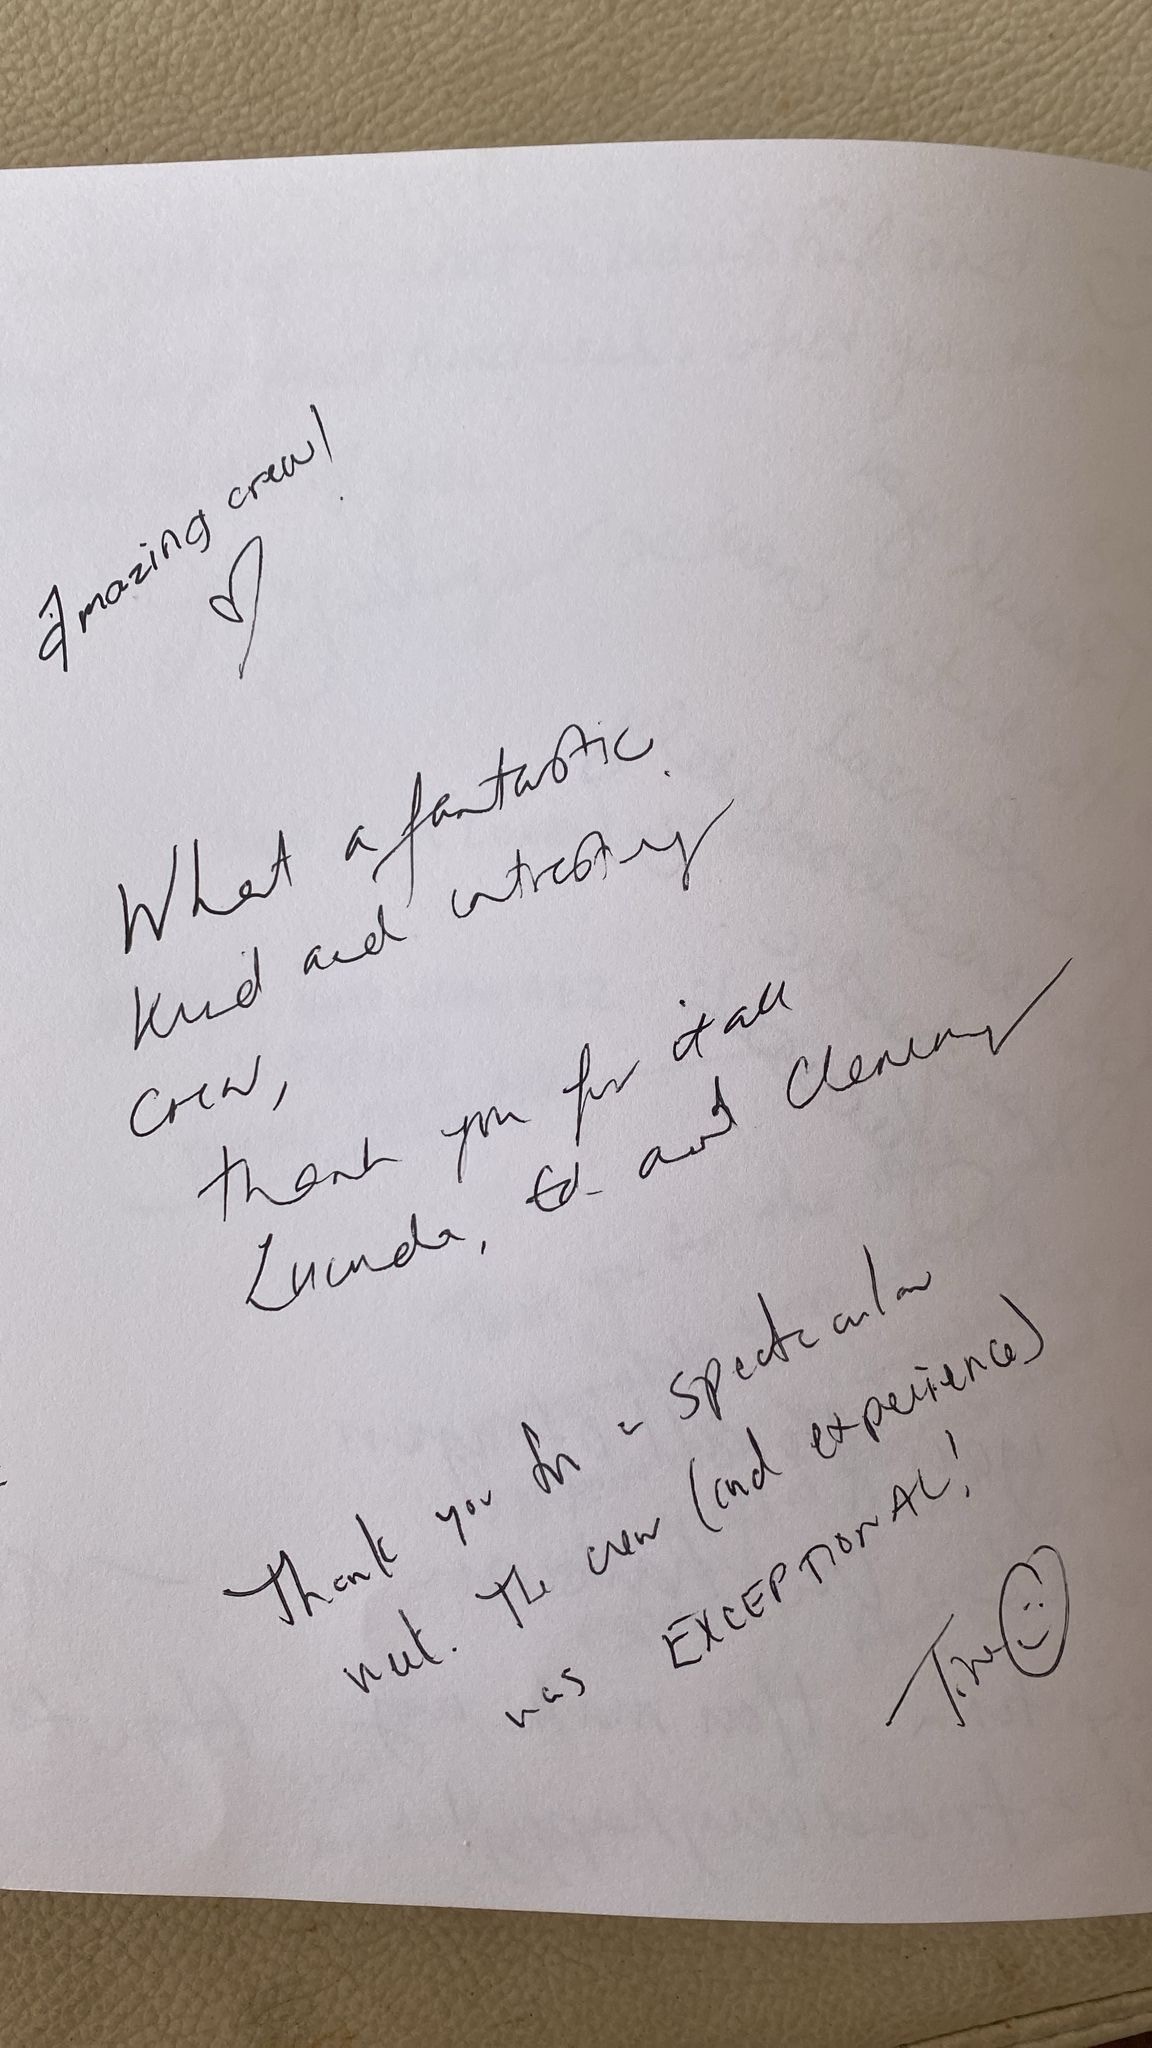 Amazing crew!
What a fantastic
kind and intresting
crew,
thank you for it all
Lucinda, Ed and Clemency
Thank you for a spectacular
week. The crew (and experience)
was EXCEPTIONAL!